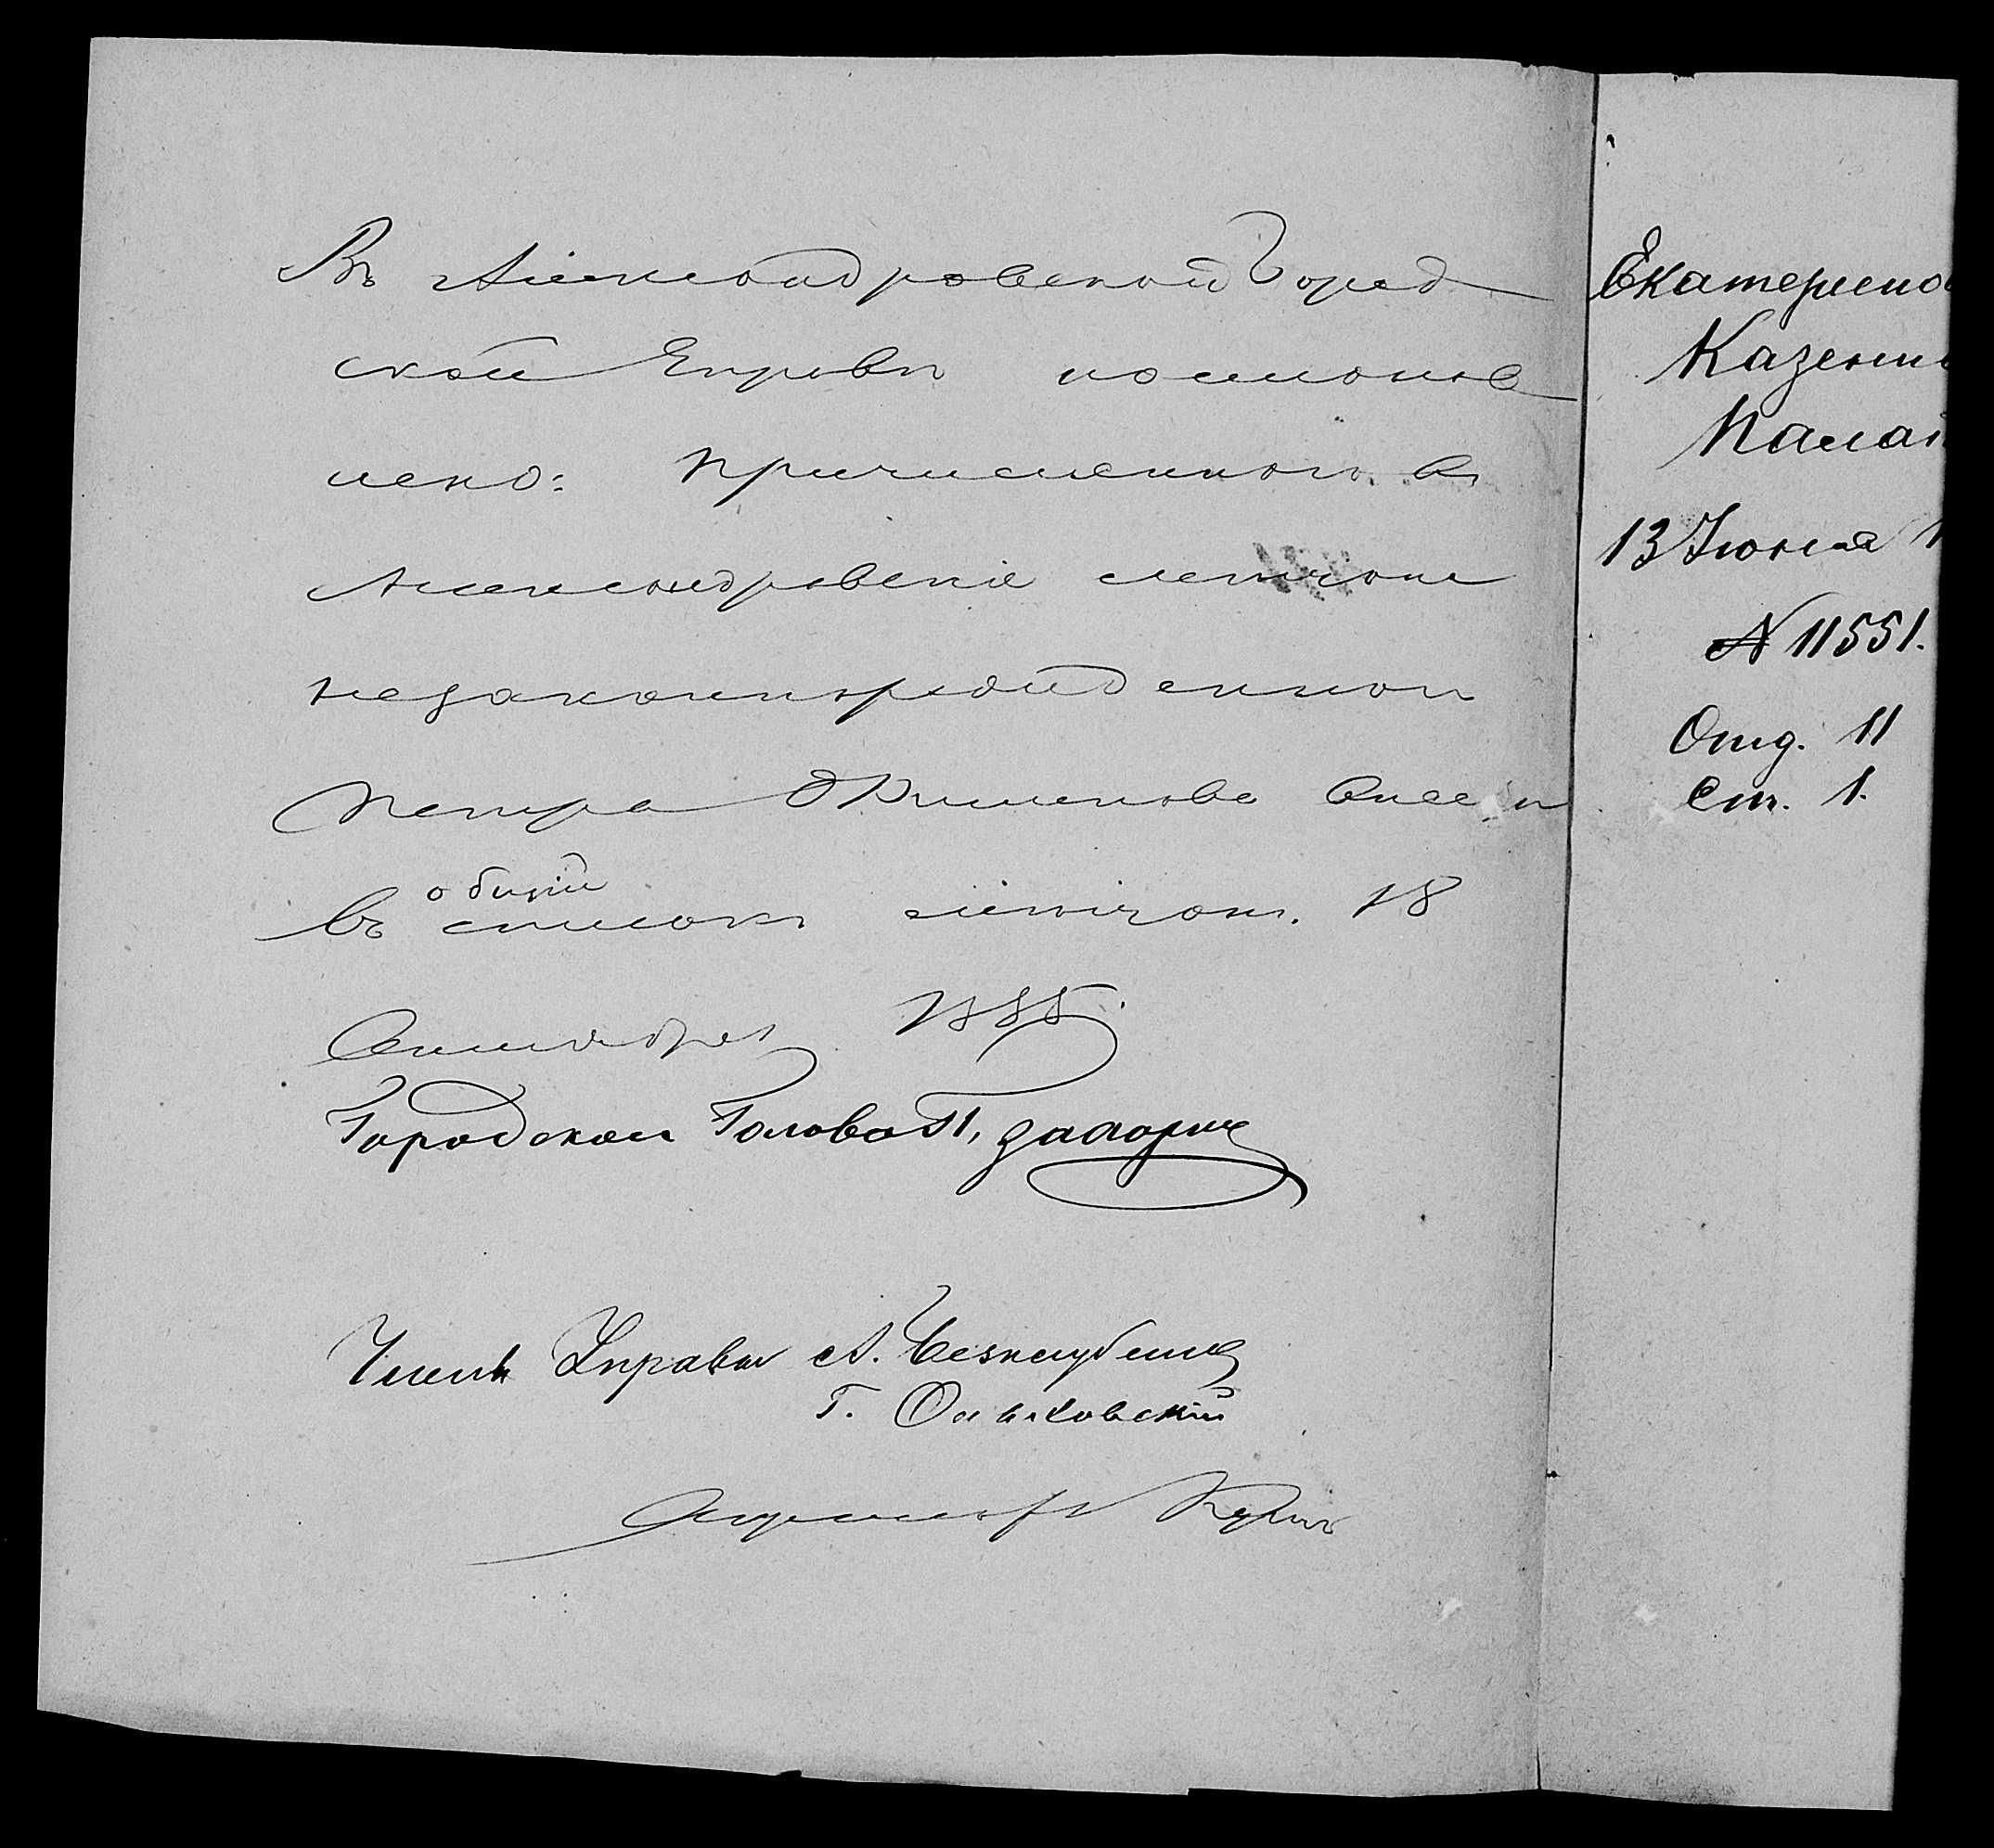 Въ Александровской Город
ской Управѣ постанов
лено: причисленнаго въ
Александровскіе мѣщане
незаконнорожденнаго
Петра внести
въ общій списокъ мѣщанъ. 18
Сентября 1885.
Городской Голова
Члены Управы А.
Г.
Секретарь
Екатеринос
Казенн
Палат
13 Іюня 1
№ 11551.
Отд. II
Ст. 1.